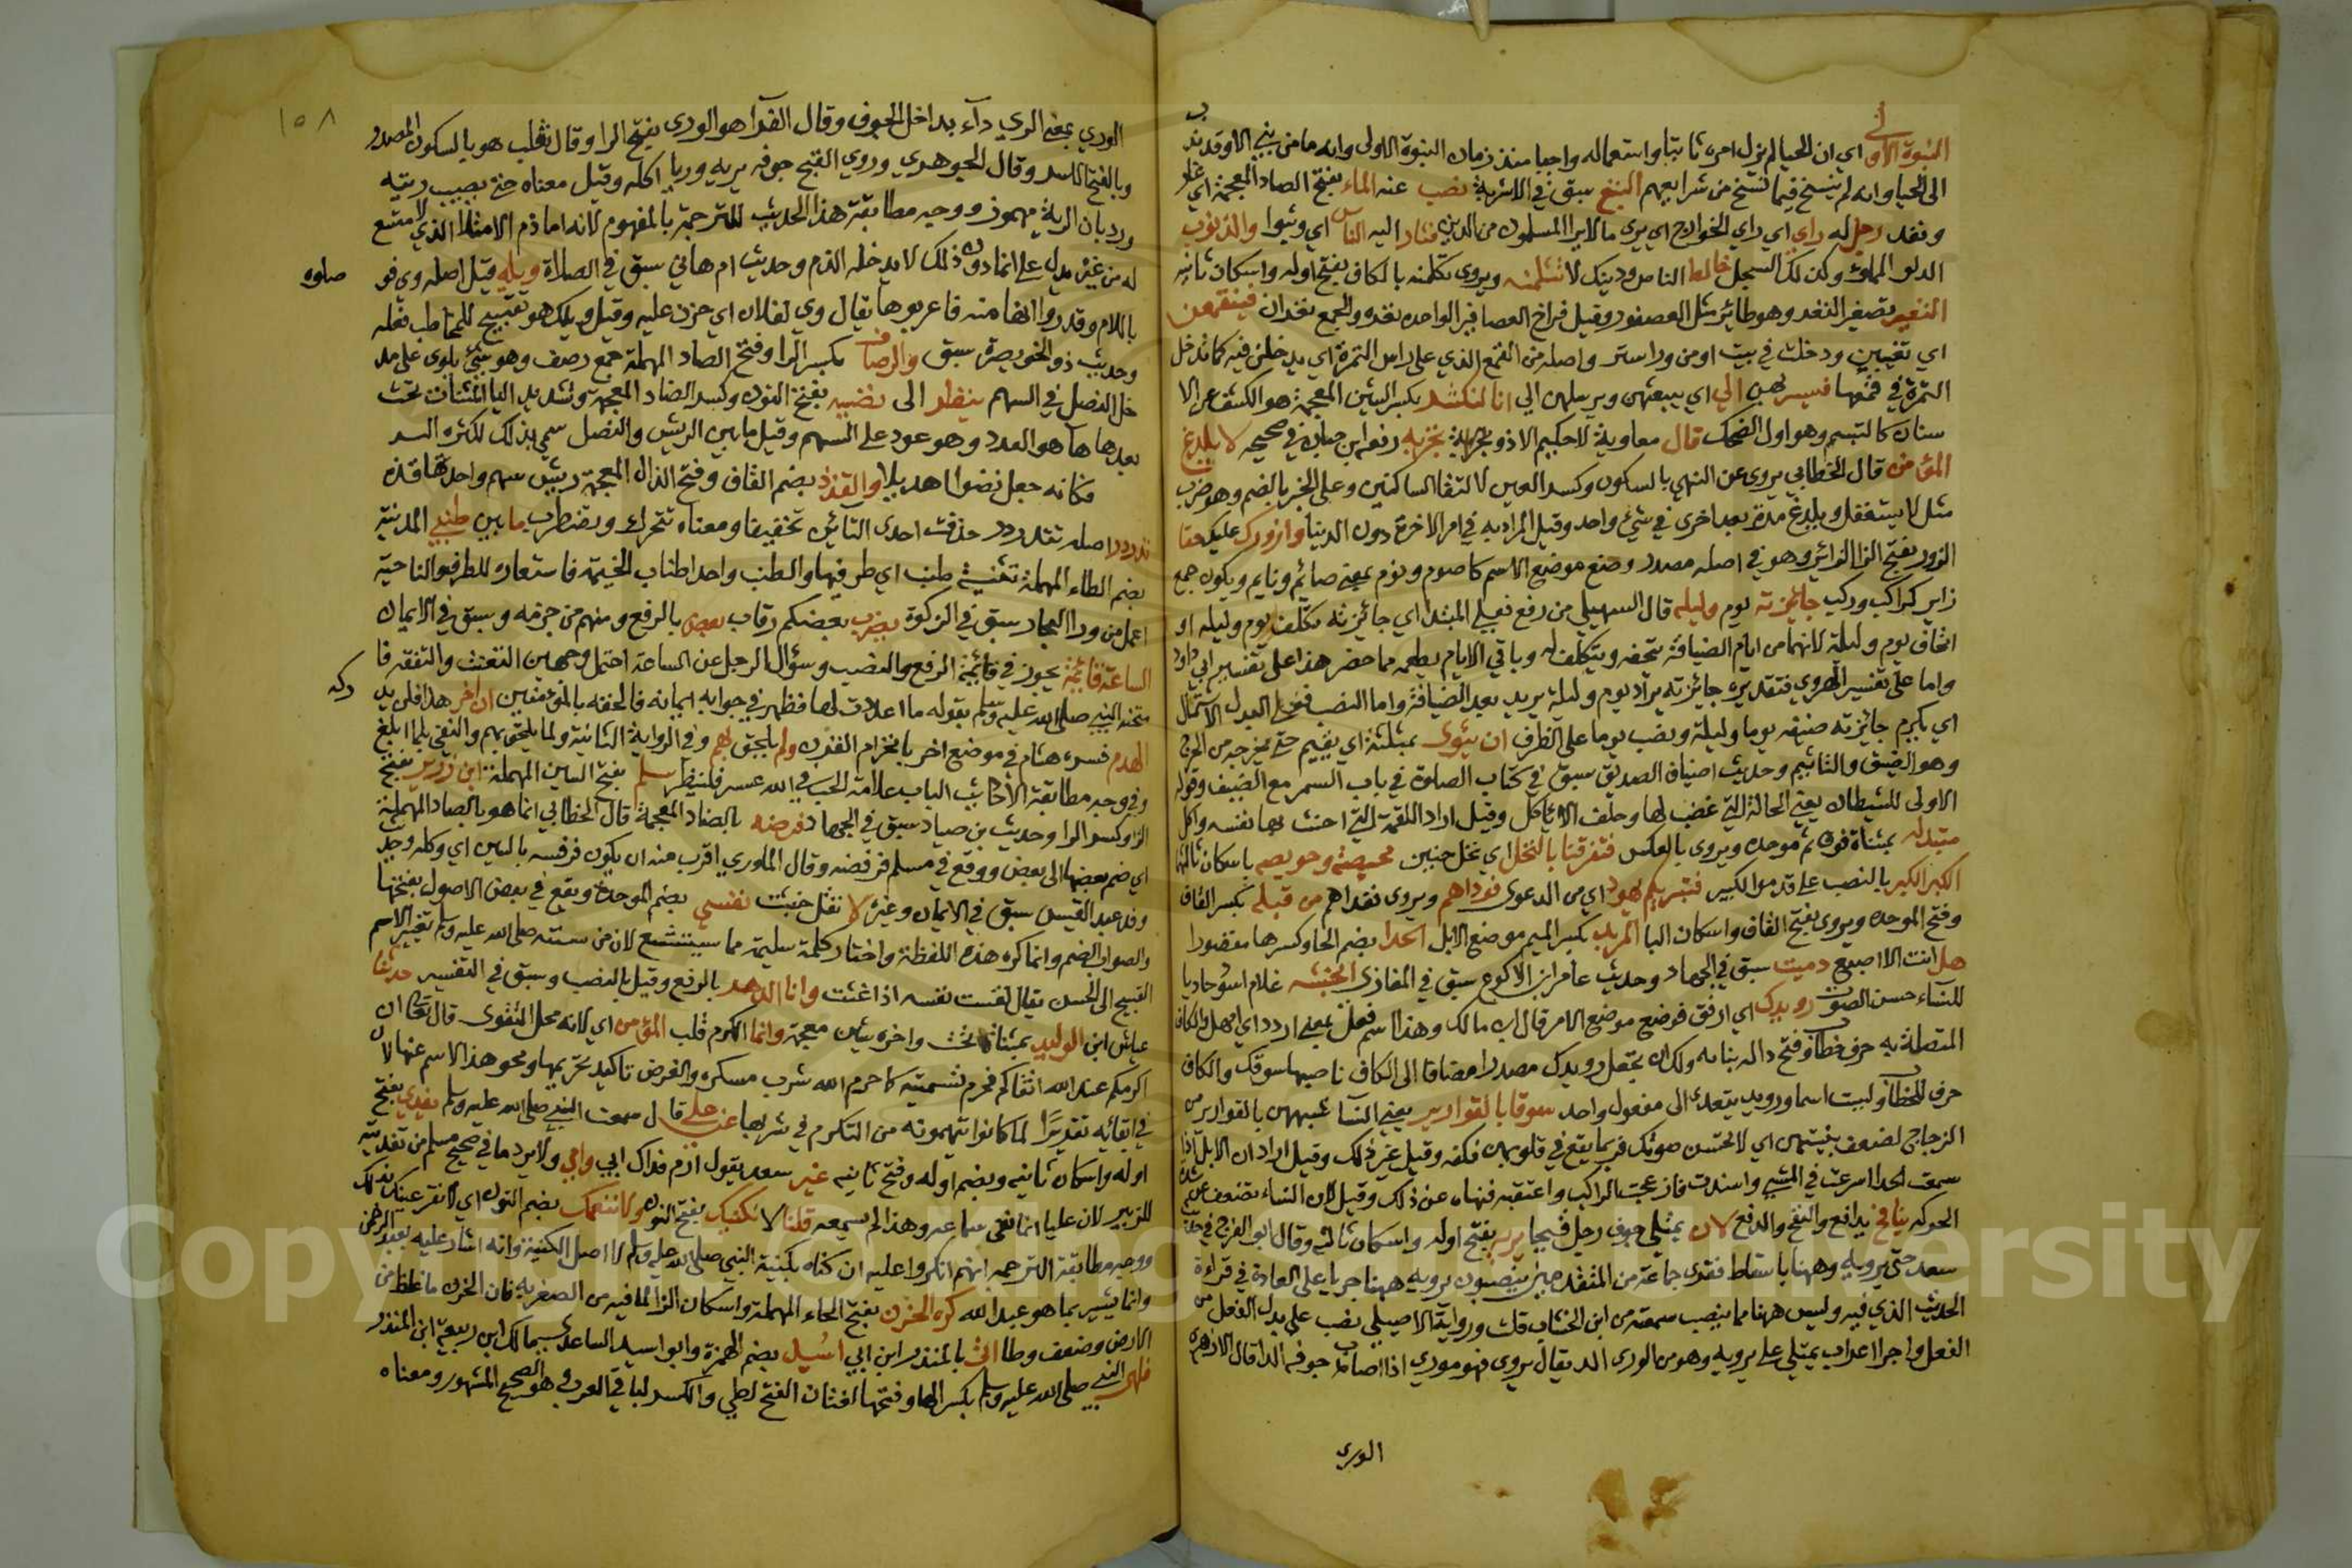 النبوة الاولى اي ان الحيا لم يزل امره ثابتا واستعماله واجبا منذ زمان النبوة الاولى وانه ما من نبي الا وقد ندب
الى الحيا وانه لم ينسخ فيما نسخ من شرايعهم البتع سبق في الاشربة نضب عنه الماء بفتح الصاد المعجمة اي غار
ونفد رجل له راي اي راي الخوارج اي يرى ما لا يرا المسلمون من الدين فثار اليه الناس اي وثبوا والذنوب
الدلو المملوء وكذلك السجل خالط الناس ودينك لا تثلمنه ويروى تكلمنه بالكاف بفتح اوله واسكان ثانيه
النغير تصغير النغر وهو طائر مثل العصفور وقيل فراخ العصافير الواحده نغره والجمع نغران فينقمعن
اي تغيبن ودخلت في بيت او من ورا ستر واصله من القمع الذي على راس التمرة اي يدخلن فيه كما تدخل
التمرة في قمعها فيسربهن الي اي يبعثهن ويرسلهن الي انا لنكشر بكسر الشين المعجمة هو الكشف عن الا
سنان كالتبسم وهو اول الضحك قال معاوية لا حكيم الا ذو تجربة رفعه ابن حبان في صحيحه لا يلدغ
المؤمن قال الخطابي يروى عن النهي بالسكون وكسر العين لالتقا الساكنين وعلى الخبر بالضم وهو ضرب
مثل لا يستغفل ويلدغ مرة بعد اخرى في شيء واحد وقيل المراد به في امر الاخرة دون الدنيا وان لزورك عليك حقا
الزور بفتح الزا الزائر وهو في اصله مصدر وضع موضع الاسم كصوم ونوم بمعنى صائم ونايم ويكون جمع
زاير كراكب وركب جائزته يوم وليله قال السهيلي من رفع فعلى المبتدا اي جائزته تكلف يوم وليله او
اتحاف يوم وليلة لانهما من ايام الضيافة يتحفه ويتكلف له وباقي الايام يطعمه مما حضر هذا على تفسير ابي داود
واما على تفسير الهروي فتقديره جايزته يراد يوم وليلة يريد بعد الضيافة واما النصب فعلى البدل الاشتمال
اي يكرم جايزته ضيفه يوما وليلة ونصب يوما على الظرف ان يثوى بمثلثة اي يقيم حتى يحرجه من الحرج
وهو الضيق والتاثيم وحديث اضياف الصديق سبق في كتاب الصلوة في باب السمر مع الضيف وقوله
الاولى للشيطان يعني الحالة التي غضب لها وحلف الا ياكل وقيل اراد اللقمة التي احنث بها نفسه واكل
بمثناة فوق ثم موحده ويروى بالعكس فتفرقنا بالنخل اي نخل خيبر محيصة وحويصه باسكان ثالثها
الكبر الكبر بالنصب على قدموا الكبير فتبريكم يهود اي من الدعوى فوداهم ويروى ففداهم من قبله بكسر القاف
وفتح الموحده ويروى بفتح القاف واسكان البا المربد بكسر الميم موضع الابل الحدا بضم الحا وكسرها مقصورا
هل انت الا اصبع دميت سبق في الجهاد وحديث عامر ابن الاكوع سبق في المغازي انجشه غلام اسود حاديا
للنساء حسن الصوت رويدك اي ارفق فوضع موضع الامر قال ابن مالك وهذا اسم فعل بمعنى ارود اي امهل والكاف
المتصلة به حرف خطاب وفتح داله بنائه ولك ان تجعل رويدك مصدرا مضافا الى الكاف ناصبها سوقك والكاف
حرف للخطاب وليست اسما ورويد يتعدى الى مفعول واحد سوقا بالقوارير يعني النسا شبههن بالقوارير من
الزجاج لضعف بنيتهن اي لا تحسن صوتك فربما يقع في قلوبهن فكفه وقيل غير ذلك وقيل اراد ان الابل اذا
سمعت الحدا اسرعت في المشي واشتدت فازعجت الراكب واتعبته فنهاه عن ذلك وقيل لان النساء تضعف عن شدة
الحركه ينافح يدافع والنفح والدفع لان يمتلي جوف رجل قيحا يريه بفتح اوله واسكان ثالثه وقال ابو الفرج في حديث
سعد حتى يريه وههنا باسقاط فقرى جماعة من المبتدئين ينصبون يريه ههنا جريا على العادة في قراءة
الحديث الذي فيه وليس ههنا ما ينصب سمعته من ابن الخشاب قلت ورواية الاصيلي نصب على بدل الفعل من
الفعل واجرا اعراب يمتلي على يريه وهو من الورى الدا يقال يروى فهو مورى اذا اصاب جوفه الدا قال الازهري
الوري
١٥٨
الوري بمعنى الري داء بداخل الجوف وقال الفرا هو الورى بفتح الرا وقال ثعلب هو بالسكون المصدر
وبالفتح الاسم وقال الجوهري وروي القيح جوفه يريه وريا اكله وقيل معناه حتى يصيب ريته
ورد بان الرية مهموز ووجه مطابقة هذا الحديث للترجمة بالمفهوم لانه اما ذم الامتلا الذي لا متسع
له من غيره يدل على انما دون ذلك لا يدخله الذم وحديث ام هاني سبق في الصلاة ويله قيل اصله وي فو
صلوه
باللام وقدروا انها منه فاعربوها يقال وي لفلان اي حزن عليه وقيل ويلك هو تقبيح للمخاطب فعله
وحديث ذو الخويصرة سبق والرصاف بكسر الرا وفتح الصاد المهملة جمع رصف وهو شيء يلوى على مد
خل النصل في السهم ينظر الى نضيه بفتح النون وكسر الضاد المعجمة وتشديد اليا المثناة تحت
بعدها ها هو العدد وهو عود على السهم وقيل ما بين الريش والنصل سمي بذلك لكثرة السر
فكانه جعل نضوا اهديلا والقذذ بضم القاف وفتح الذال المعجمة ريش سهم واحدتها قذه
تدردر اصله تتدردر حذفت احدى التائين تخفيفا ومعناه تتحرك وتضطرب ما بين طنبي المدينة
بضم الطاء المهملة تثنية طنب اي طرفيها والطنب واحد اطناب الخيمة فاستعاره للطرف والناحية
اعمل من ورا البحار سبق في الزكوة يضرب بعضكم رقاب بعض بالرفع ومنهم من جزمه وسبق في الايمان
الساعة قائمة يجوز في قائمة الرفع والنصب وسؤال الرجل عن الساعة احتمل وجهين التعنت والتفقه فا
متحنه النبي صلى الله عليه وسلم بقوله ما اعددت لها فظهر في جوابه ايمانه فالحقه بالمؤمنين ان اخر هذا فلن يد
ركه
الهرم فسره هشام في موضع اخر بانخرام القرن ولم يلحق بهم وفي الرواية الثانية ولما يلحق بهم والنفي بلما ابلغ
وفي وجه مطابقة الاحاديث الباب علامة الحب في الله عسر فلينظر سلم بفتح السين المهملة ابن زرير بفتح
الزا وكسر الرا وحديث بن صياد سبق في الجهاد فرضه بالضاد المعجمة قال الخطابي انما هو بالصاد المهملة
اي ضم بعضها الى بعض ووقع في مسلم فرفضه وقال الماوردي اقرب منه ان يكون فرفسه بالسين اي وكله وحديث
وفد عبد القيس سبق في الايمان وغيره لا تقل خبثت نفسي بضم الموحدة ويقع في بعض الاصول بفتحها
والصواب الضم وانما كره هذه اللفظة واختار كلمة سليمة مما يستبشع لان من سنته صلى الله عليه وسلم تغيير الاسم
القبيح الى الحسن يقال لقست نفسه اذا غثت وانا الدهر بالرفع وقيل بالنصب وسبق في التفسير حدثنا
عياش ابن الوليد بمثناة تحت واخره شين معجمة وانما الكرم قلب المؤمن اي لانه محل التقوى قال تعالى ان
اكرمكم عند الله اتقاكم فحرم تسميته كا حرم الله شرب مسكره والغرض تاكيد تحريمها ومحو هذا الاسم عنها لان
في ابقائه تقديرا لما كانوا يتهمونه من التكرم في شربها عن علي قال سمعت النبي صلى الله عليه وسلم يفدي بفتح
اوله واسكان ثانيه وبضم اوله وفتح ثانيه غير سعد يقول ارم فداك ابي وامي ولا يرد ما في صحيح مسلم من تفديته
للزبير لان عليا انما نفى سماعه وهذا لم يسمعه قلنا لا نكنيك بفتح النون ولا ننعمك بضم النون اي لا نقر عينك بذلك
ووجه مطابقة الترجمه انهم انكروا عليه ان كناه بكنية النبي صلى الله عليه وسلم لا اصل الكنية وانه اشار عليه بعبد الرحمن
وانما يشير بما هو عبد الله كره الحزن بفتح الحاء المهملة واسكان الزا لما فيه من الصعوبه فان الحزن ما غلظ من
الارض وضعف وطا اتى بالمنذر ابن ابي اسيد بضم الهمزة وابو اسيد الساعدي سيما مالك ابن ربيعة ابن المنذر
فلهى النبي صلى الله عليه وسلم بكسر الها وفتحها لغتان الفتح لطي والكسر لباقي العرب وهو الصحيح المشهور ومعناه
Copyright © King Saud University